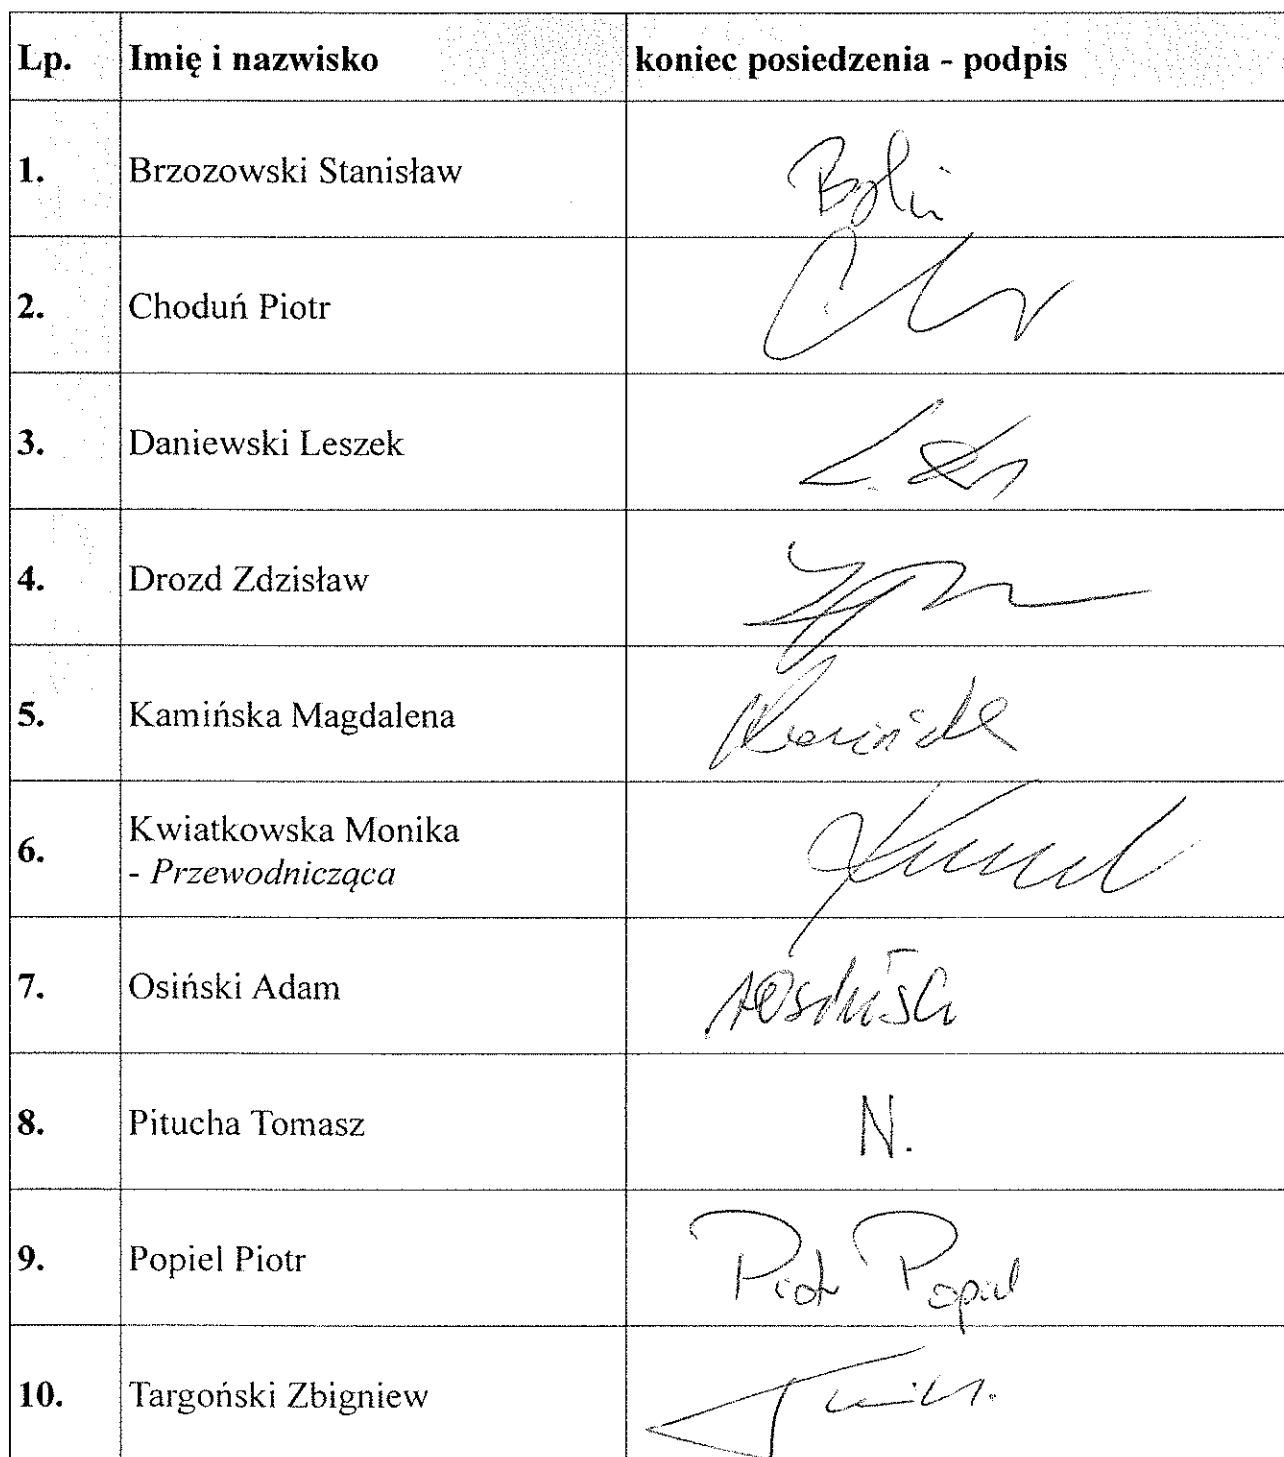 Lp. Imię i nazwisko koniec posiedzenia - podpis
1. Brzozowski Stanisław
2. Choduń Piotr
3. Daniewski Leszek
4. Drozd Zdzisław
5. Kamińska Magdalena
6. Kwiatkowska Monika
- Przewodnicząca
7. Osiński Adam
8. Pitucha Tomasz N.
9. Popiel Piotr Piotr Popiel
10. Targoński Zbigniew